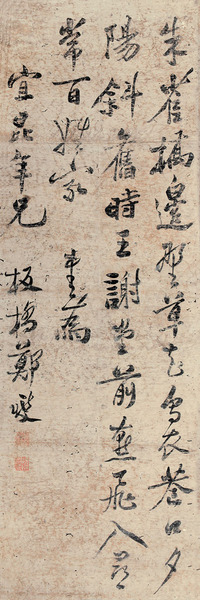 朱雀橋邊野草花烏衣巷口夕
陽斜舊時王謝堂前燕飛入尋
常百姓家 書為
宜昆年兄 板橋鄭燮